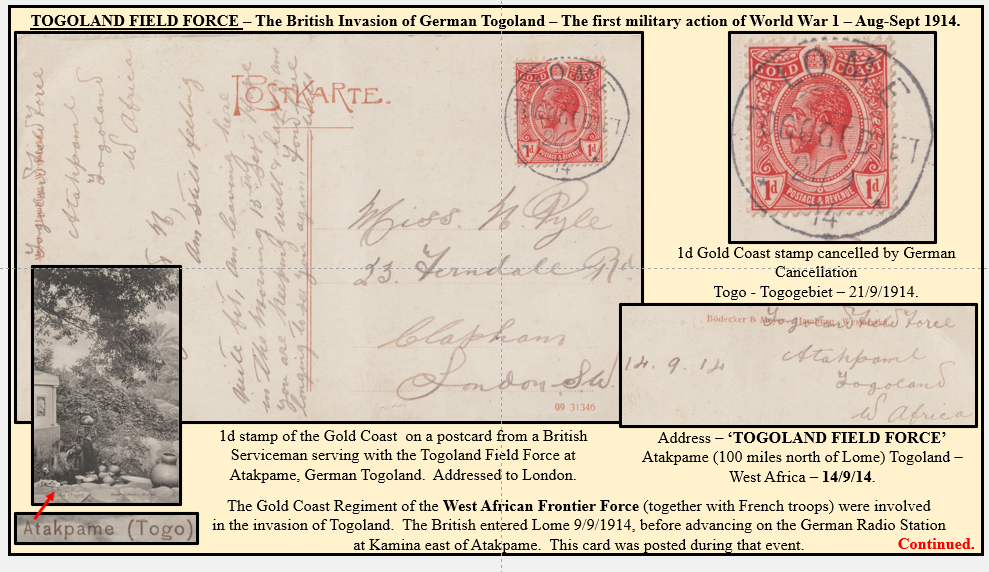 TOGOLAND FIELD FORCE – The British Invasion of German Togoland – The first military action of World War 1 – Aug-Sept 1914.
POSTKARTE.
Togoland Field Force
Atakpaml
Togoland
W Africa
Am still feeling
quite fit, am leaving here
in the morning 15 Sept. hope
you are keeping well & happy am
longing to see you again.
Miss. N Pyle
23. Ferndale Rd
Clapham
London. S.W.
09 31346
GOLD COAST
1d 1d
POSTAGE & REVENUE
LOME
TOGOGEBIET
14
GOLD COAST
LOME
TOGOGEBIET
21
9
14
1d 1d
POSTAGE & REVENUE
1d Gold Coast stamp cancelled by German
Cancellation
Togo - Togogebiet – 21/9/1914.
Bödecker & Meyer, Hamburg
Togoland Field Force
14. 9. 14
Atakpaml
Togoland
W Africa
Atakpame (Togo)
1d stamp of the Gold Coast on a postcard from a British
Serviceman serving with the Togoland Field Force at
Atakpame, German Togoland. Addressed to London.
Address – ‘TOGOLAND FIELD FORCE’
Atakpame (100 miles north of Lome) Togoland –
West Africa – 14/9/14.
The Gold Coast Regiment of the West African Frontier Force (together with French troops) were involved
in the invasion of Togoland. The British entered Lome 9/9/1914, before advancing on the German Radio Station
at Kamina east of Atakpame. This card was posted during that event.
Continued.